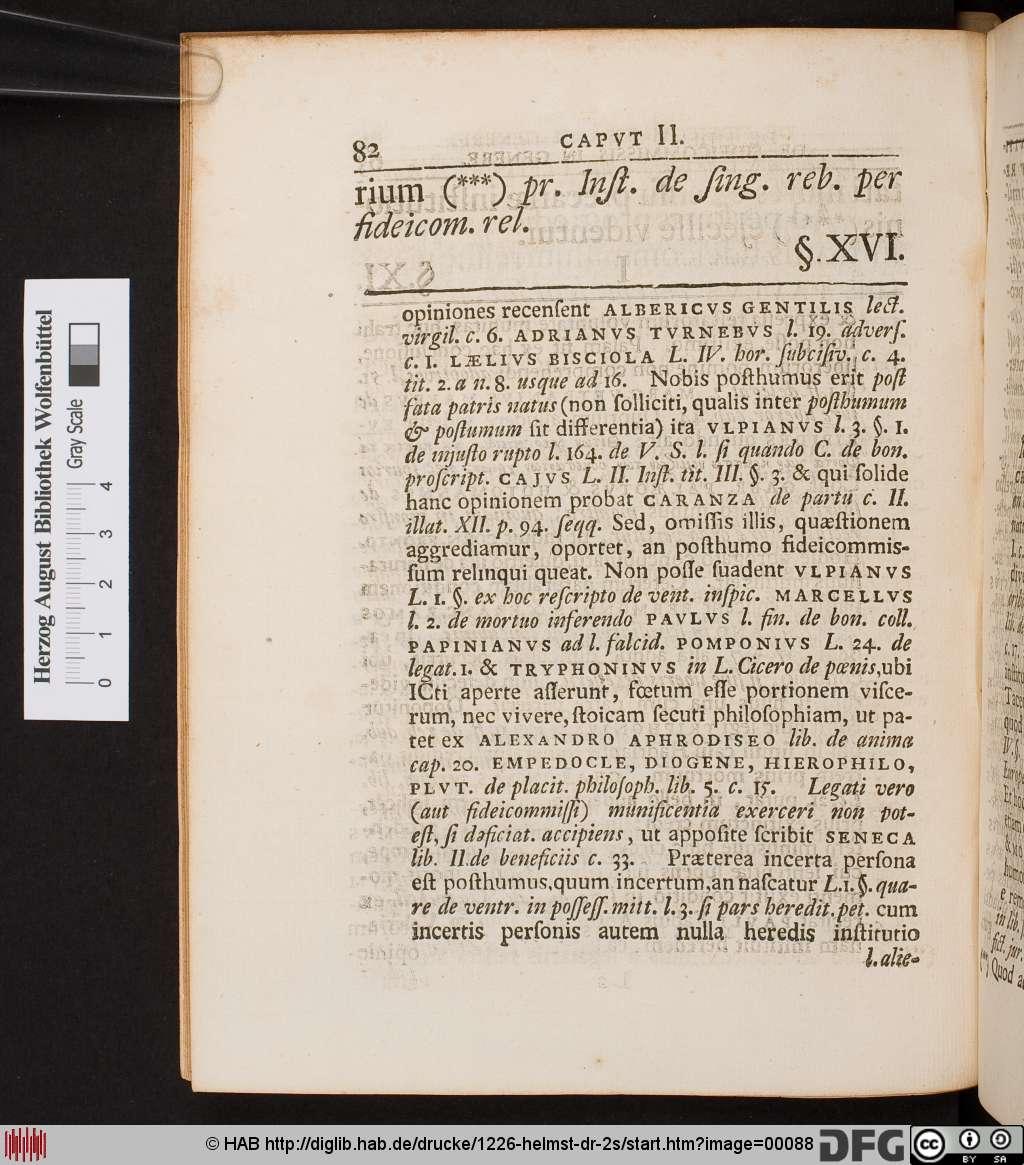 82 CAPVT II.
rium (***) pr. Inſt. de ſing. reb. per
fideicom. rel.
§. XVI.
opiniones recenſent ALBERICVS GENTILIS lect.
virgil. c. 6. ADRIANVS TVRNEBVS l. 19. adverſ.
c. I. LÆLIVS BISCIOLA L. IV. hor. ſubciſiv. c. 4.
tit. 2. a n. 8. usque ad 16. Nobis poſthumus erit poſt
fata patris natus (non ſolliciti, qualis inter poſthumum
& poſtumum ſit differentia) ita VLPIANVS l. 3. §. I.
de injuſto rupto l. 164. de V. S. l. ſi quando C. de bon.
proſcript. CAJVS L. II. Inſt. tit. III. §. 3. & qui ſolide
hanc opinionem probat CARANZA de partu c. II.
illat. XII. p. 94. ſeqq. Sed, omiſſis illis, quæſtionem
aggrediamur, oportet, an poſthumo fideicommiſ-
ſum relinqui queat. Non poſſe ſuadent VLPIANVS
L. I. §. ex hoc reſcripto de vent. inſpic. MARCELLVS
l. 2. de mortuo inferendo PAVLVS l. fin. de bon. coll.
PAPINIANVS ad l. falcid. POMPONIVS L. 24. de
legat. I. & TRYPHONINVS in L. Cicero de pœnis, ubi
ICti aperte aſſerunt, fœtum eſſe portionem viſce-
rum, nec vivere, ſtoicam ſecuti philoſophiam, ut pa-
tet ex ALEXANDRO APHRODISEO lib. de anima
cap. 20. EMPEDOCLE, DIOGENE, HIEROPHILO,
PLVT. de placit. philoſoph. lib. 5. c. 15. Legati vero
(aut fideicommiſſi) munificentia exerceri non pot-
eſt, ſi deficiat. accipiens, ut appoſite ſcribit SENECA
lib. II. de beneficiis c. 33. Præterea incerta perſona
eſt poſthumus, quum incertum, an naſcatur L. I. §. qua-
re de ventr. in poſſeſſ. mitt. l. 3. ſi pars heredit. pet. cum
incertis perſonis autem nulla heredis inſtitutio
l. alie-
Herzog August Bibliothek Wolfenbüttel
Gray Scale
0 1 2 3 4
© HAB http://diglib.hab.de/drucke/1226-helmst-dr-2s/start.htm?image=00088 DFG CC BY SA